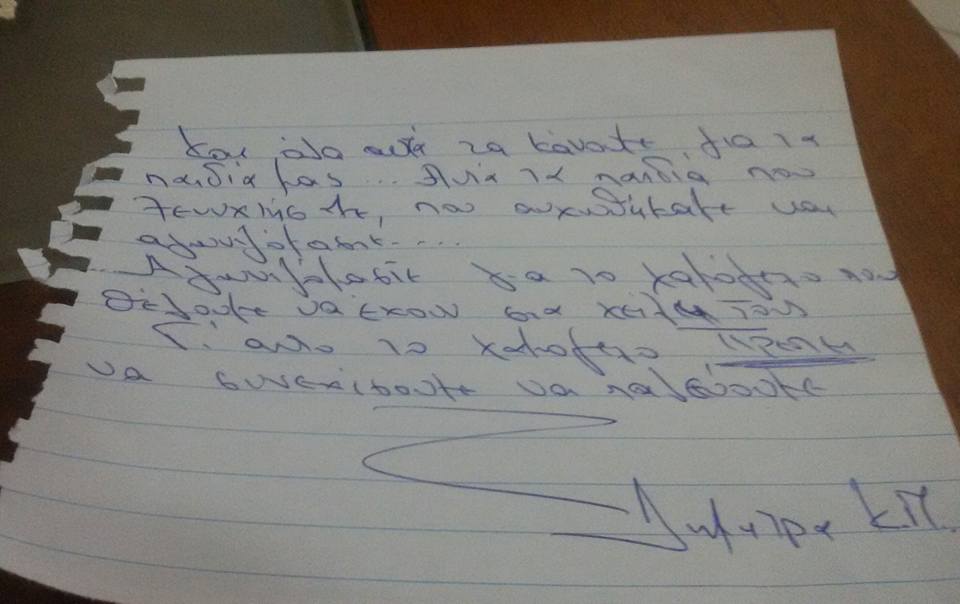 Και όλα αυτά τα κάνατε για τα
παιδιά μας ... Για τα παιδιά που
ξενυχτήσατε, που
αγωνιζόμαστε....
Αγωνιζόμαστε για το χαμόγελο που
θέλουμε να έχουν στα χείλη τους
Γι αυτο το χαμογελο πρεπει
να συνεχίσουμε να παλεύουμε
Δημητρα Κ.Π.